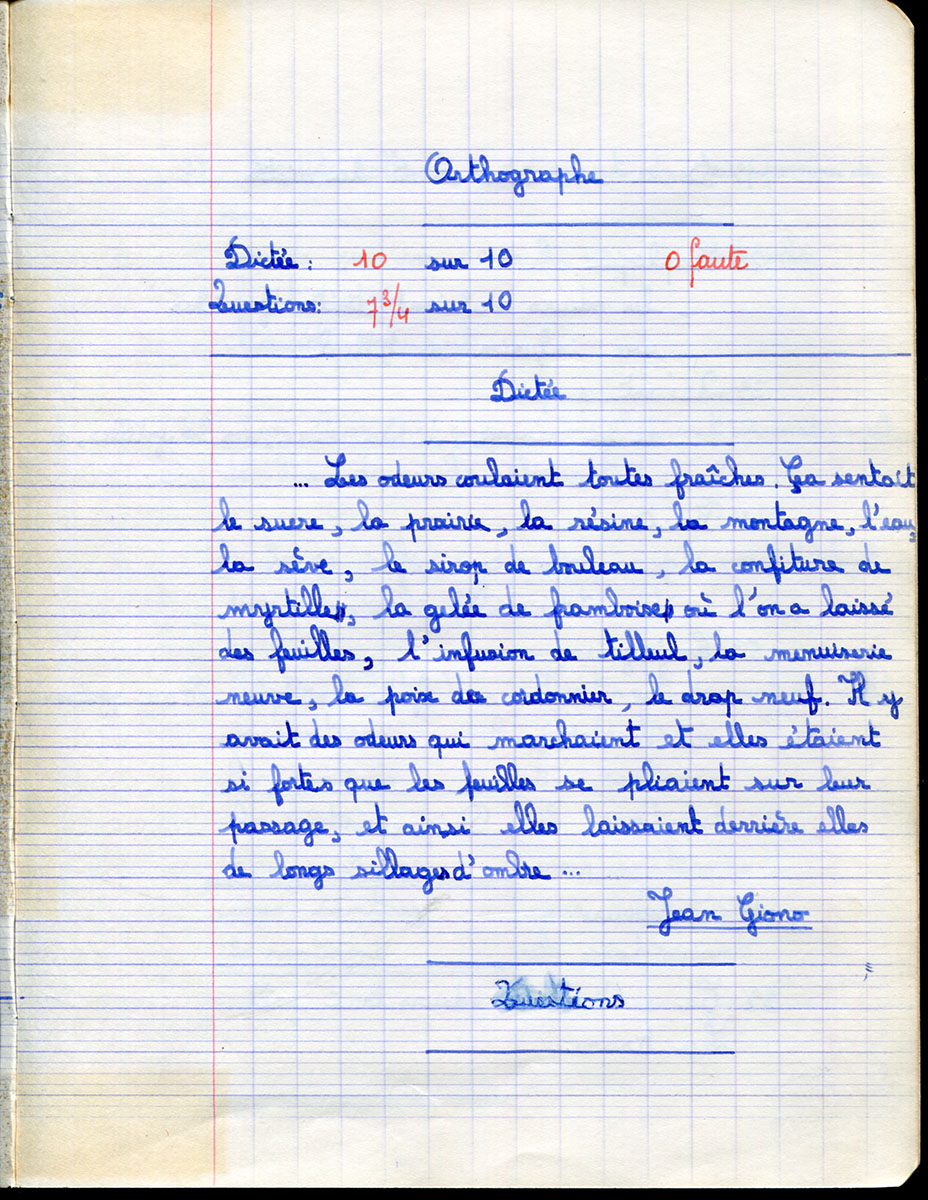 Orthographe
Dictée : 10 sur 10 0 faute
Questions: 7 3/4 sur 10
Dictée
... Les odeurs coulaient toutes fraîches. Ça sentait
le sucre, la prairie, la résine, la montagne, l'eau,
la sève, le sirop de bouleau, la confiture de
myrtille, la gelée de framboise où l'on a laissé
des feuilles, l'infusion de tilleul, la menuiserie
neuve, la poix de cordonnier, le drap neuf. Il y
avait des odeurs qui marchaient et elles étaient
si fortes que les feuilles se pliaient sur leur
passage, et ainsi elles laissaient derrière elles
de longs sillages d'ombre ...
Jean Giono
Questions